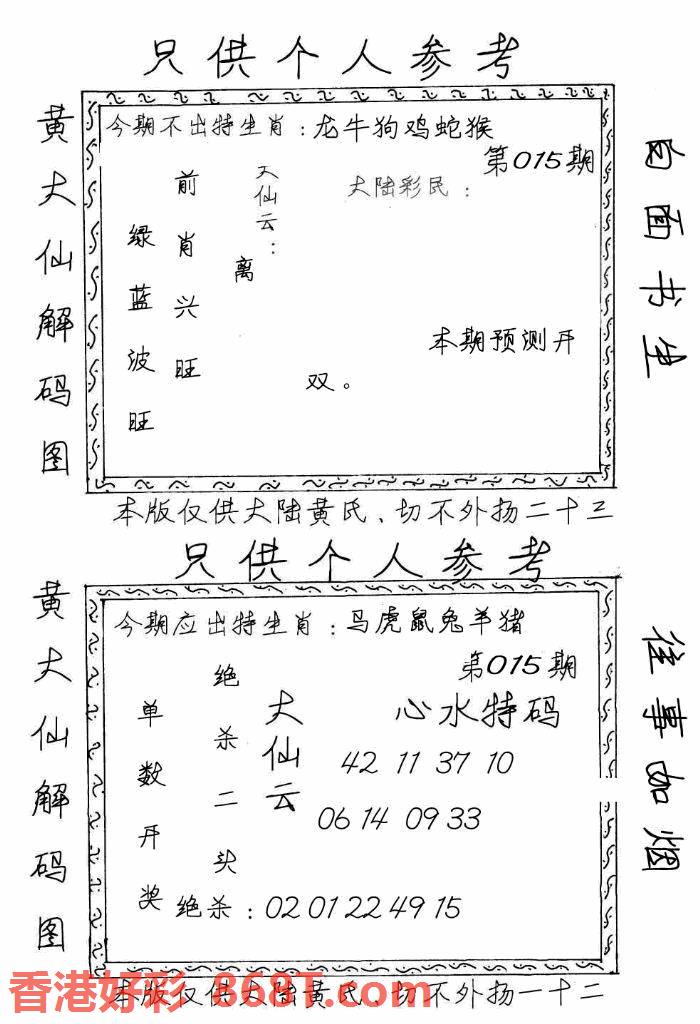 只供个人参考
黄大仙解码图
今期不出特生肖：龙牛狗鸡蛇猴
第015期
大仙云：
大陆彩民：
前肖兴旺
绿蓝波旺
离
本期预测开
双。
白面书生
本版仅供大陆黄氏、切不外扬二十三
只供个人参考
黄大仙解码图
今期应出特生肖：马虎鼠兔羊猪
第015期
绝杀二头
单数开奖
大仙云
心水特码
42 11 37 10
06 14 09 33
绝杀：02 01 22 49 15
往事如烟
本版仅供大陆黄氏、切不外扬一十二
香港好彩 868T.com